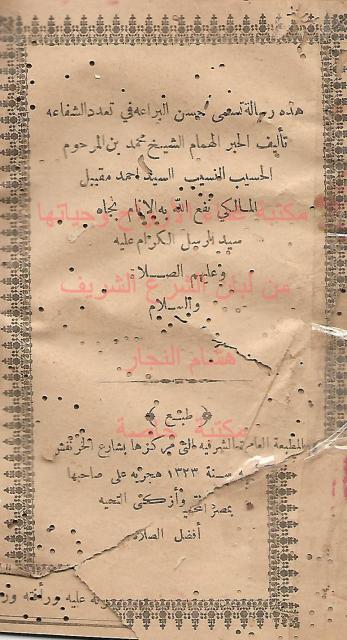 هذه رسالة تسمى حسن البراعه في تعدد الشفاعه
تأليف الحبر الهمام الشيخ محمد بن المرحوم
الحسيب النسيب السيد احمد مقيبل
المالكي نفع الله به الانام بجاه
مكتبة علم الأرواح وحياتها
سيد الرسل الكرام عليه
وعليهم الصلاة
من لبنان الشرع الشريف
والسلام
هشام النجار
طبع
مكتبة خاصة
بالمطبعة العامرة الشرفيه التي مركزها بشارع الخرنفش
سنة ١٣٢٣ هجريه على صاحبها
بمصر وأزكى التحيه
أفضل الصلاة
عليه